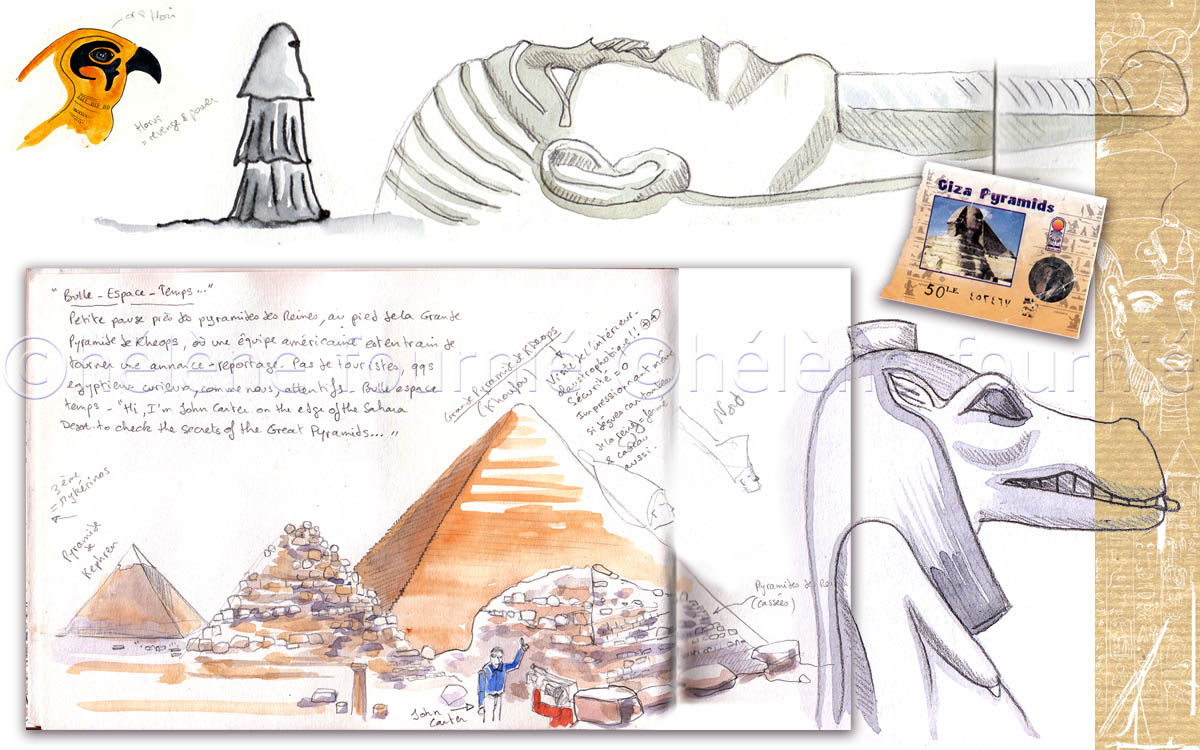 Horus
revenge & power
Giza Pyramids
50 LE
" Bulle - Espace - Temps ... "
Petite pause près des pyramides des Reines, au pied de la Grande
Pyramide de Kheops, où une équipe américaine est en train de
tourner une annonce-reportage. Pas de touristes, qqs
egyptiens curieux, comme nous, attentifs. Bulle espace
temps - "Hi, I'm John Carter on the edge of the Sahara
Desert to check the secrets of the Great Pyramids... "
Grande Pyramide de Kheops
(Khoufou)
Visite de l'intérieur -
claustrophobique!!!
Sécurité = 0
Impressionnant même
si
de la
&
aussi.
Nord
3ème
= Mykérinos
Pyramide
de
Kephren
Pyramides de Re
(cassées)
John
Carter
© hélène fourné © hélène fourné